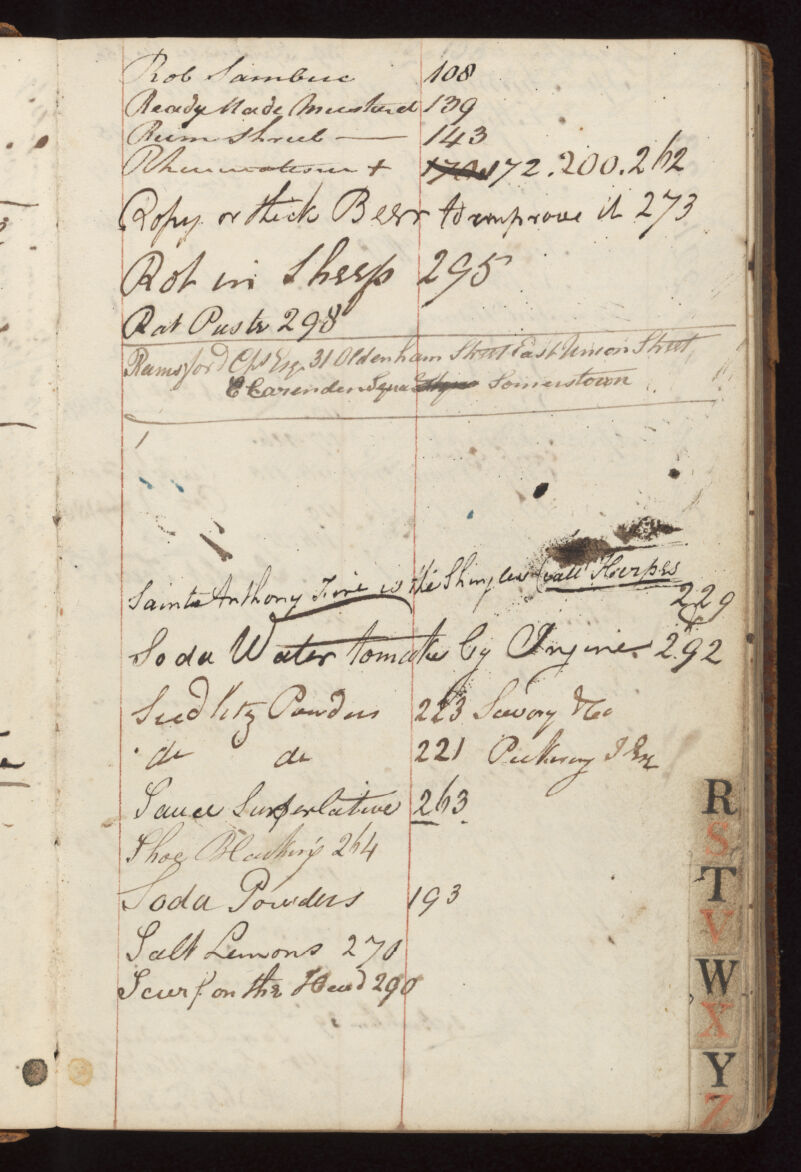 Rob Sambuc 108
Ready Made Musterd 139
Rum Shrub — 143
Rheumatism + 170 172.200.262
Ropy or thick Beer to improve it 273
Rot in Sheep 295
Rat Paste 298
Ramsford Esq. 31 Oldenham Street East Union Street
Clarenden Squa Somerstown
Saints Anthony Fire is the Shingles Call Herpes
229
Soda Water to make by Engine. 292
Seedlitz Powders 223 Savory & Co
do do 221 Pickney J Esq
Sauce Superlative 263
Shoe Blacking 264
Soda Powders 193
Salt Lemons 270
Scurf on the Head 290
R
S
T
V
W
X
Y
Z